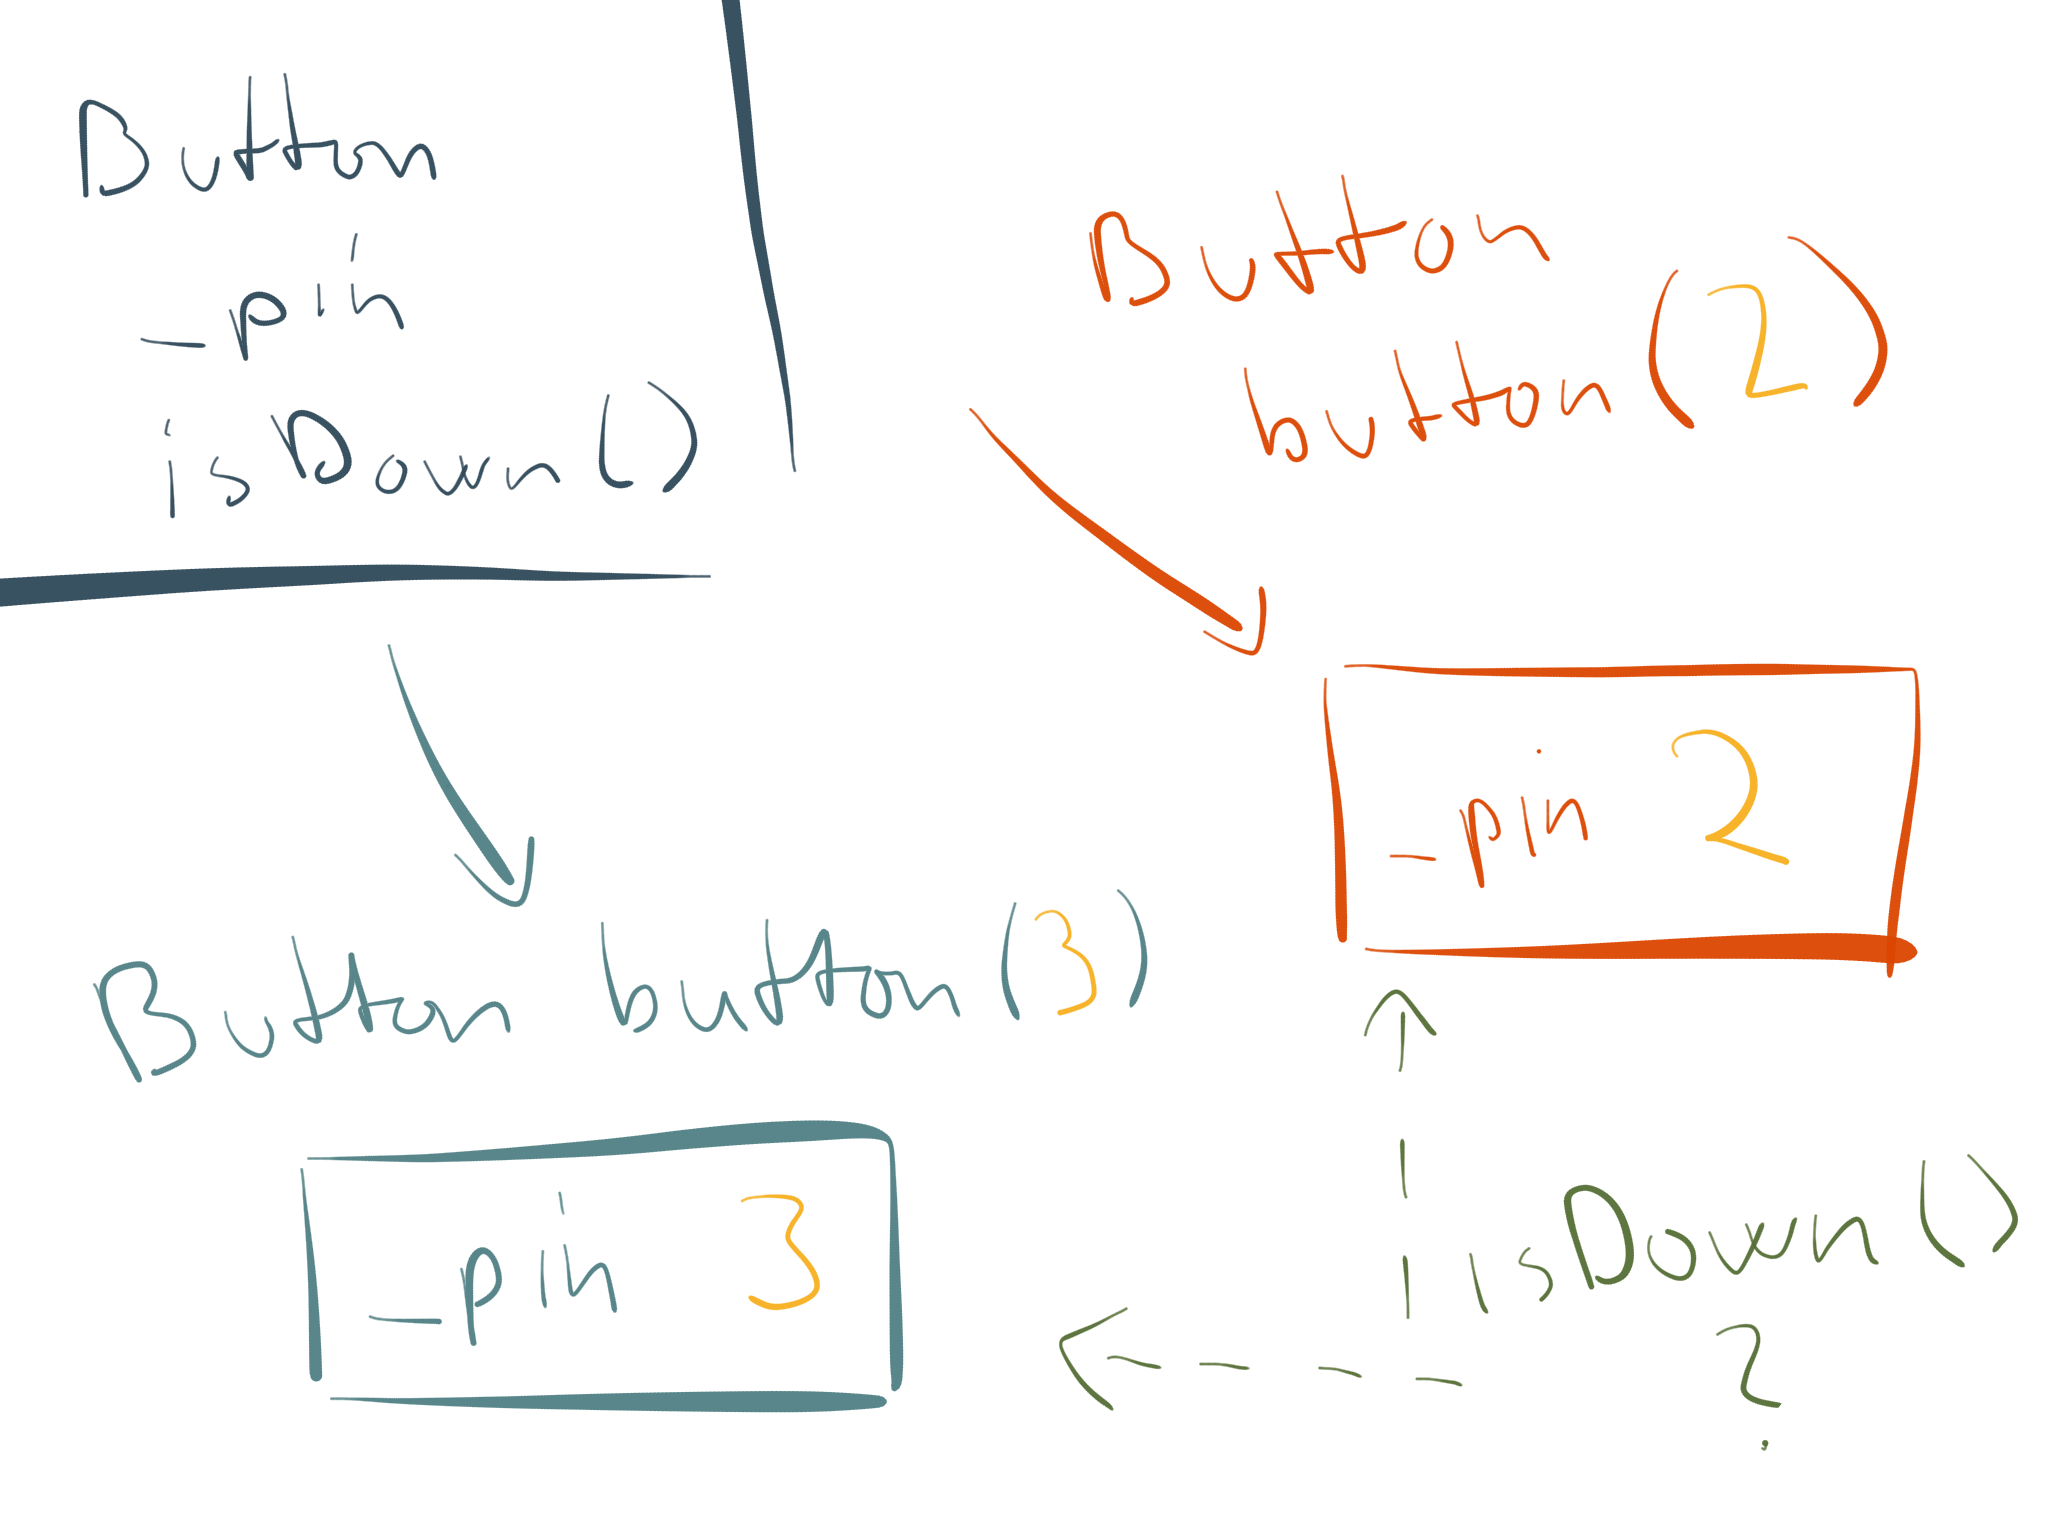 Button
_pin
isDown()
Button
button(2)
_pin 2
Button button(3)
_pin 3
isDown()
?